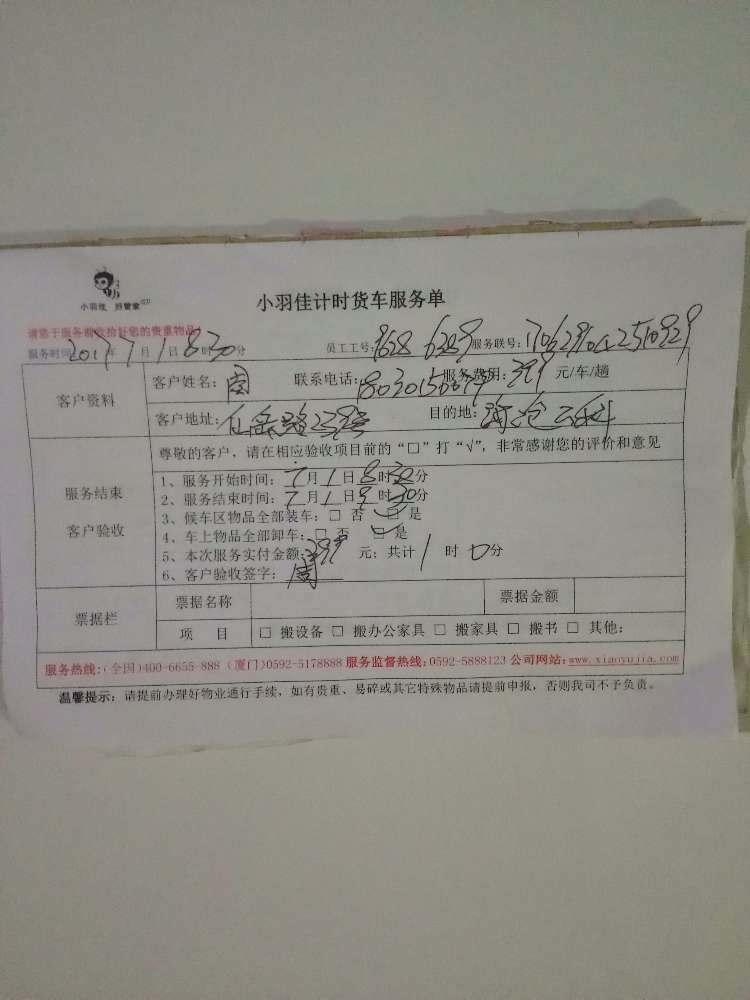 小羽佳 好管家
小羽佳计时货车服务单
请您于服务前收拾好您的贵重物品
服务时间:2017年7月1日8时30分 员工工号:9628 6289 服务联号:
客户资料
客户姓名:周 联系电话: 服务费用:399元/车/趟
客户地址: 目的地:海沧
服务结束
客户验收
尊敬的客户，请在相应验收项目前的“□”打“√”，非常感谢您的评价和意见
1、服务开始时间:7月1日8时30分
2、服务结束时间:7月1日9时30分
3、候车区物品全部装车:□ 否 ☑ 是
4、车上物品全部卸车:□ 否 ☑ 是
5、本次服务实付金额:399元:共计1时0分
6、客户验收签字:周
票据栏
票据名称 票据金额
项 目 □ 搬设备 □ 搬办公家具 □ 搬家具 □ 搬书 □ 其他:
服务热线:(全国)400-6655-888 (厦门)0592-5178888 服务监督热线:0592-5888123 公司网站:www.xiaoyujia.com
温馨提示：请提前办理好物业通行手续，如有贵重、易碎或其它特殊物品请提前申报，否则我司不予负责。